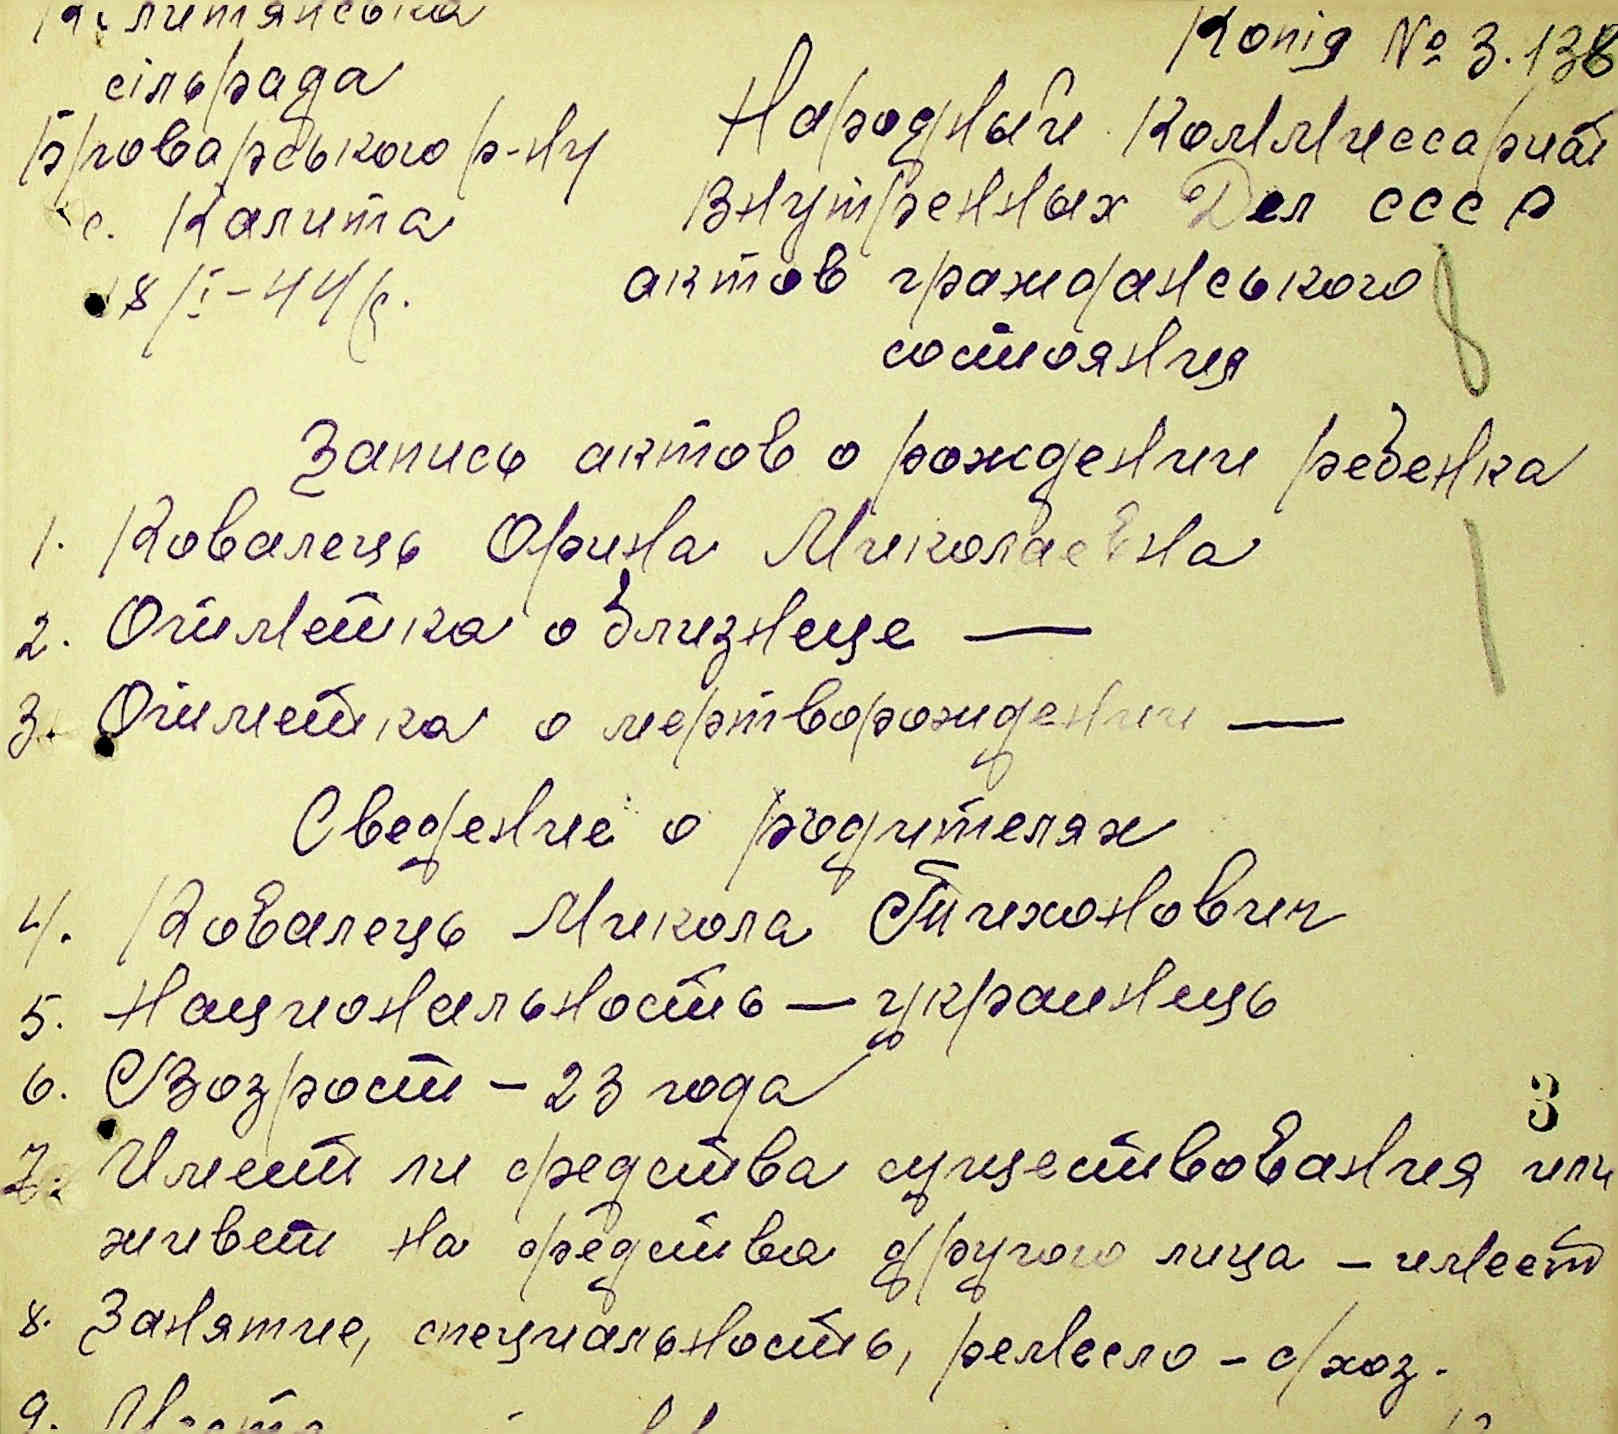 Калитянська
сільрада
Броварського р-ну
с. Калита
18/І-44 р.
Копія № 3.138
Народный Коммиссариат
Внутренных Дел СССР
актов гражданського
состояния
8
Запись актов о рождении ребенка
1. Ковалець Орина Миколаевна
2. Отметка о близнеце —
3. Отметка о мерторождении —
Сведение о родителях
4. Ковалець Микола Тихонович
5. Национальность — украинець
6. Возрост - 23 года
3
7. Имеет ли средства существования или
живет на средства другого лица - имеет
8. Занятие, специальность, ремесло - с/хоз.
9.